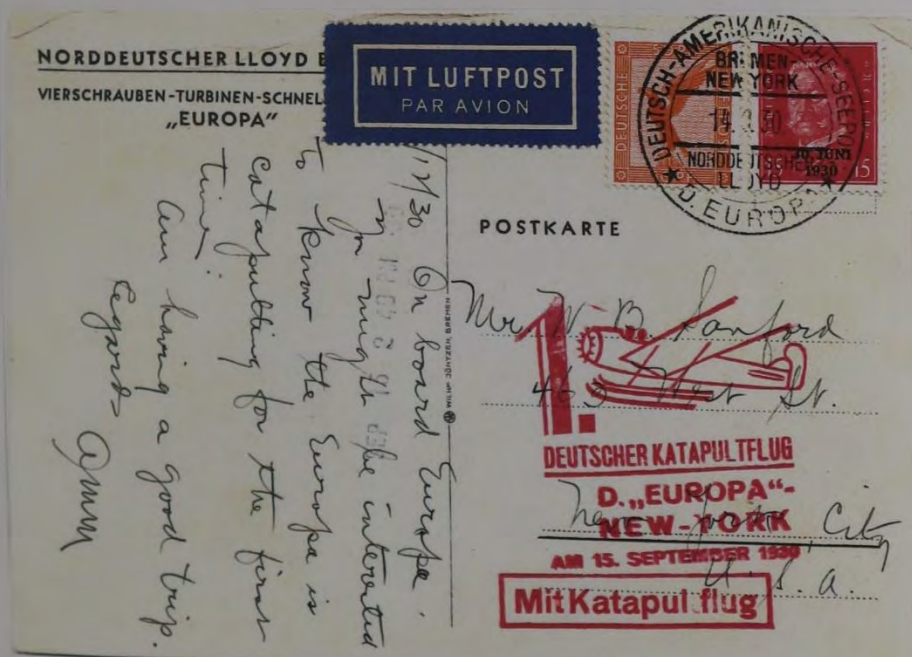 NORDDEUTSCHER LLOYD
VIERSCHRAUBEN-TURBINEN-SCHNEL
„EUROPA“
MIT LUFTPOST
PAR AVION
DEUTSCHE
DEUTSCH-AMERIKANISCHE-SEEPOST
BREMEN-
NEW YORK
NORDDEUTSCHER
LLOYD
D. EUROPA
30. JUNI
1930
15
On board Europe.
you might be interested
to know the Europa is
catapulting for the first
time.
Am having a good trip.
Regards
POSTKARTE
WILH. JÖNTZEN, BREMEN
Mr. W. B. Sanford
463 West St.
New York City
U.S.A.
1.
DEUTSCHER KATAPULTFLUG
D. „EUROPA“-
NEW-YORK
AM 15. SEPTEMBER 1930
Mit Katapul flug